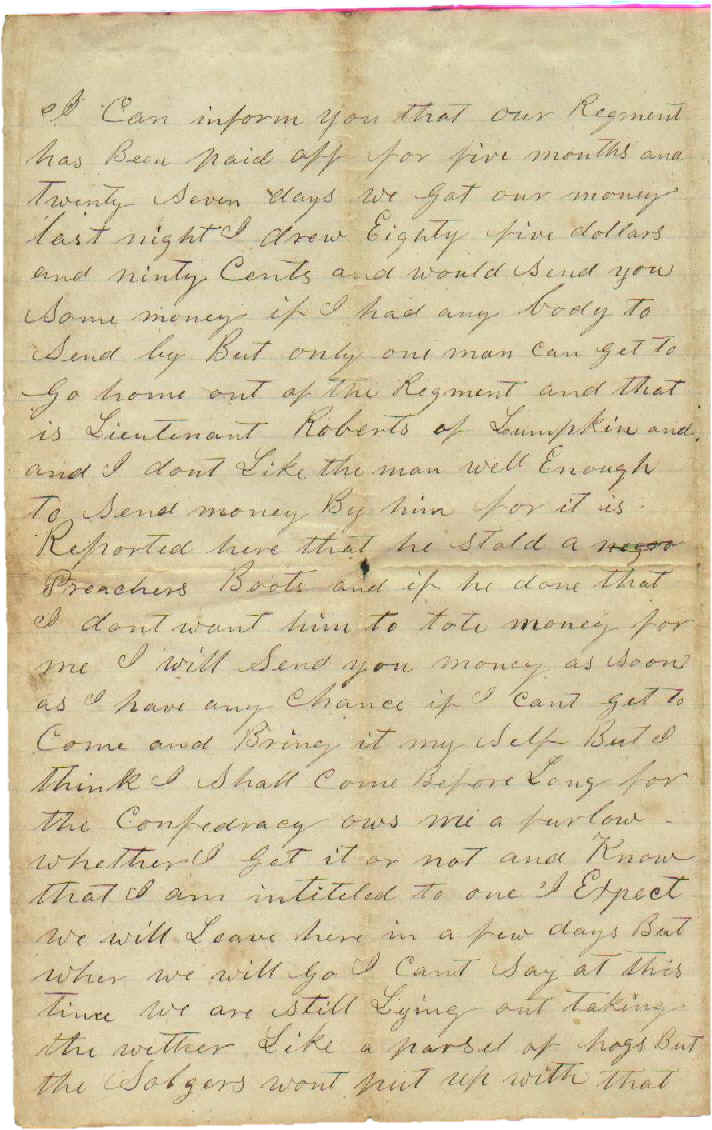 I Can inform you that our Regment
has Been paid off for five months and
twenty seven days we got our money
last night I drew Eighty five dollars
and ninty Cents and would send you
some money if I had any body to
Send by But only one man can get to
Go home out of the Regment and that
is Lieutenant Roberts of Lumpkin and
and I dont Like the man well Enough
to send money By him for it is
Reported here that he stold a negro
Preachers Boots and if he done that
I dont want him to tote money for
me I will Send you money as soon
as I have any Chance if I cant get to
Come and Bring it my self But I
think I Shall Come Before Long for
the Confedracy ows me a furlow
whether I get it or not and Know
that I am intiteled to one I Expect
we will Leave here in a few days But
wher we will Go I Cant Say at this
time we are still Lying out taking
the wether Like a parsel of hogs But
the Solgers wont put up with that